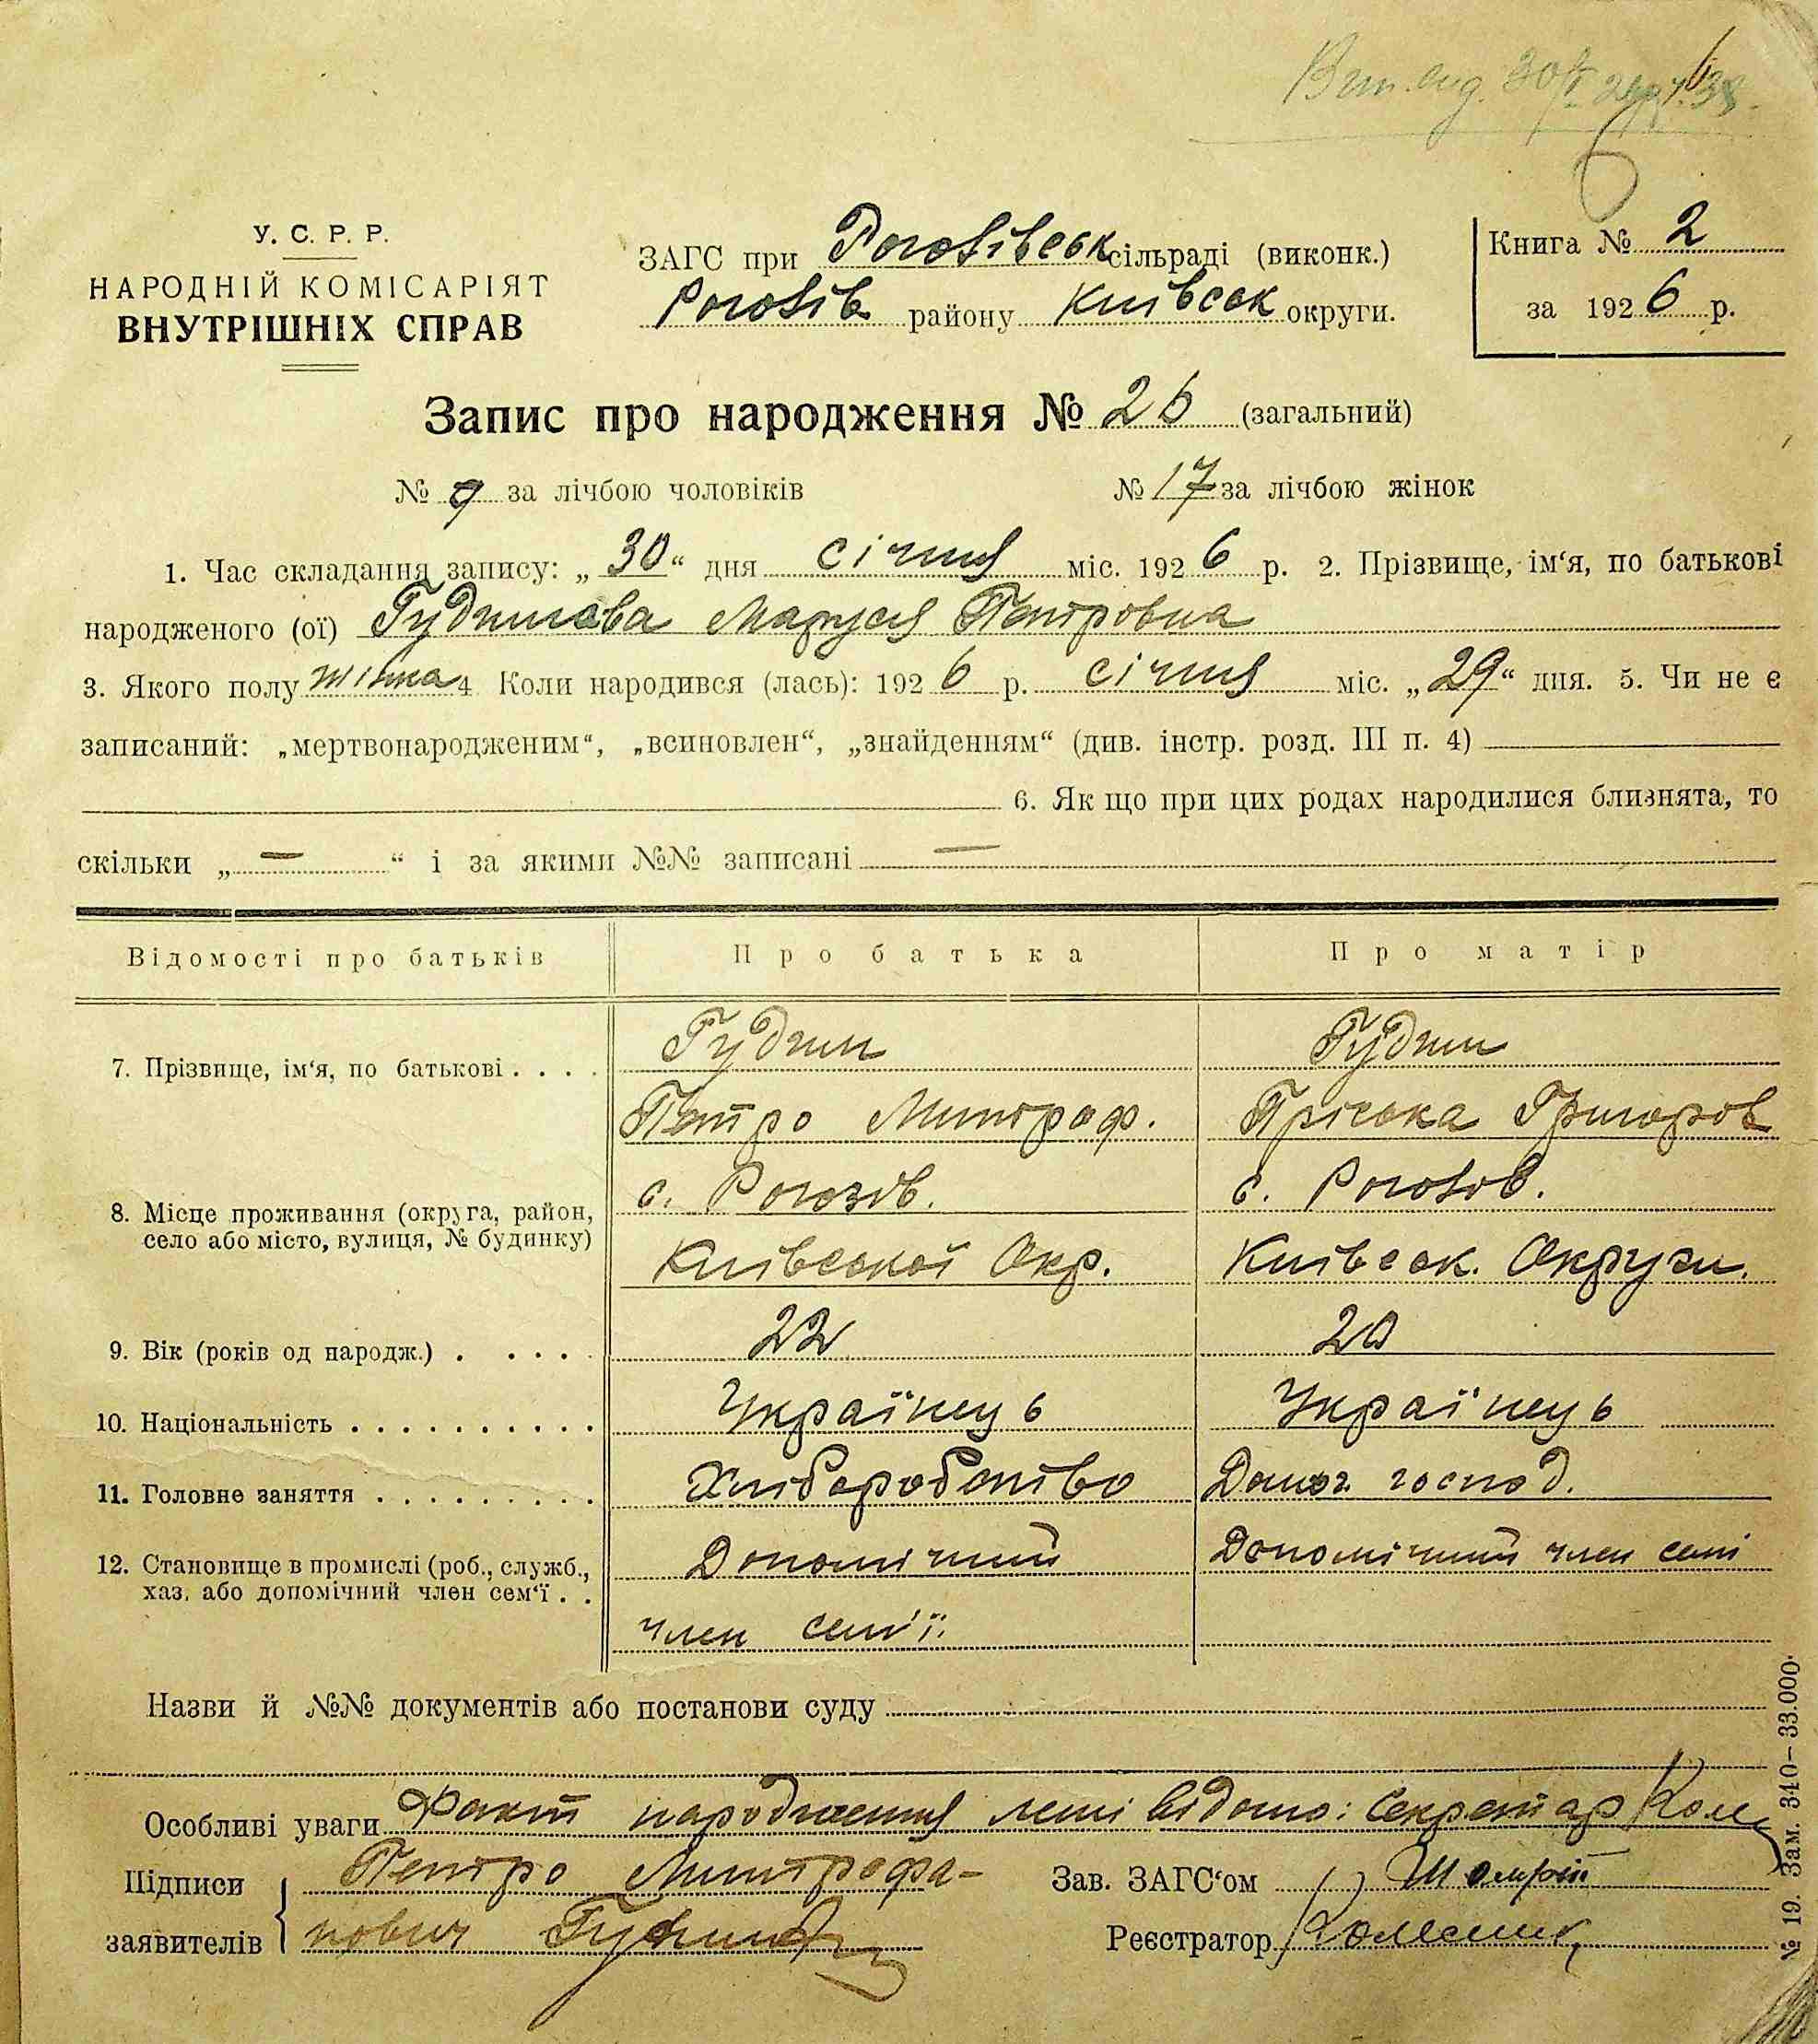 Вип. вид. 30/I 38
6
У. С. Р. Р.
НАРОДНІЙ КОМІСАРІЯТ
ВНУТРІШНІХ СПРАВ
ЗАГС при Рогозівськ сільраді (виконк.)
Рогозів району Київськ округи.
Книга № 2
за 1926 р.
Запис про народження № 26 (загальний)
№ 9 за лічбою чоловіків № 17 за лічбою жінок
1. Час складання запису: „30“ дня січня міс. 1926 р. 2. Прізвище, ім‘я, по батькові
народженого (ої) Гудимова Маруся Петровна
3. Якого полу жіноча 4 Коли народився (лась): 1926 р. січня міс. „29“ дня. 5. Чи не є
записаний: „мертвонародженим“, „всиновлен“, „знайденням“ (див. інстр. розд. III п. 4)
6. Як що при цих родах народилися близнята, то
скільки „—“ і за якими №№ записані —
Відомості про батьків Про батька Про матір
7. Прізвище, ім‘я, по батькові . . . . Гудим Гудим
Петро Митроф. Пріська Григоров
8. Місце проживання (округа, район, с. Рогозів. с. Рогозов.
село або місто, вулиця, № будинку) Київської Окр. Київськ. Округи.
9. Вік (років од народж.) . . . . . 22 20
10. Національність . . . . . . . . . . Українець Українець
11. Головне заняття . . . . . . . . . Хліборобство Домог. господ.
12. Становище в промислі (роб., служб., Допомічний Допомічний член семі
хаз. або допомічний член сем‘ї . . член сем'ї.
Назви й №№ документів або постанови суду
Особливі уваги Факт народження мені відомо: Секретар Кол
Підписи Петро Митрофа-
заявителів нович Гудим
Зав. ЗАГС‘ом
Реєстратор Колесник
№ 19. Зам. 340–33.000.